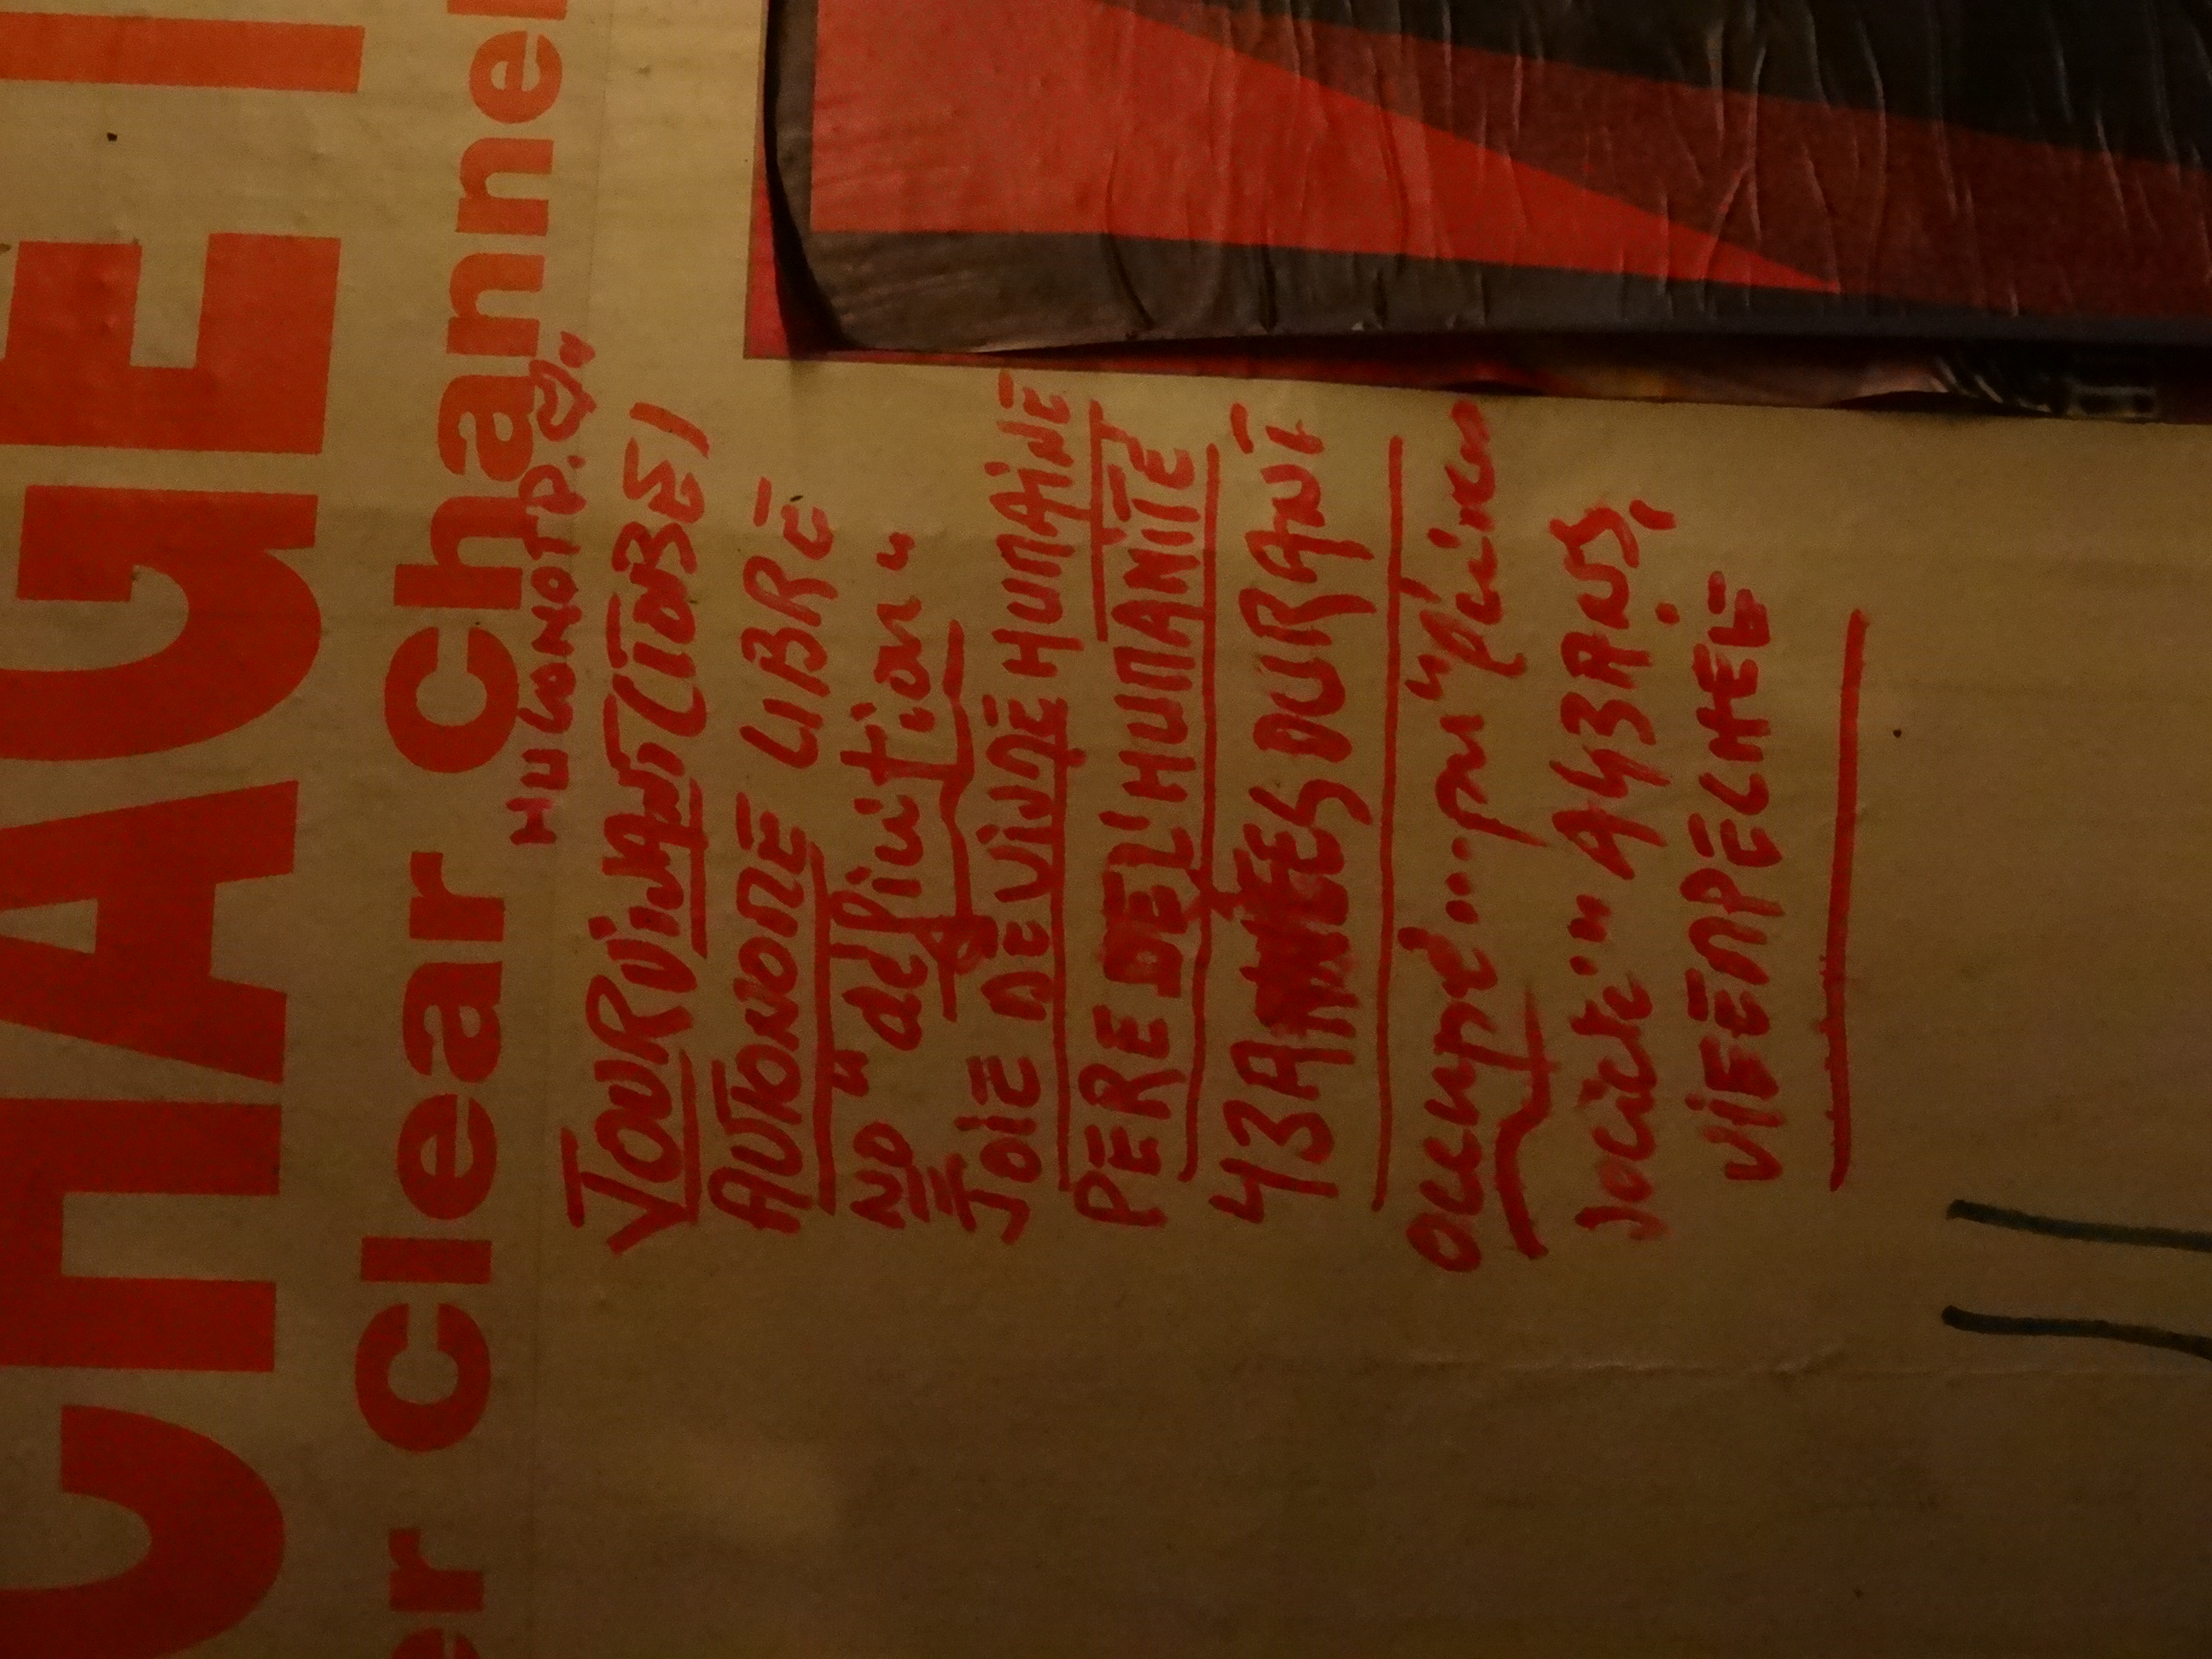 CHAGE
er Clear Channel
HUGONOT P.
JOUR VIVANT (TOBE)
AUTONOME LIBRE
NO "définition"
JOIE DE VIVRE HUMAINE
PERE DE L'HUMANITE
43 ANNÉES DURANT
occupé...
société" A 43 ANS,
VIE EMPECHEE